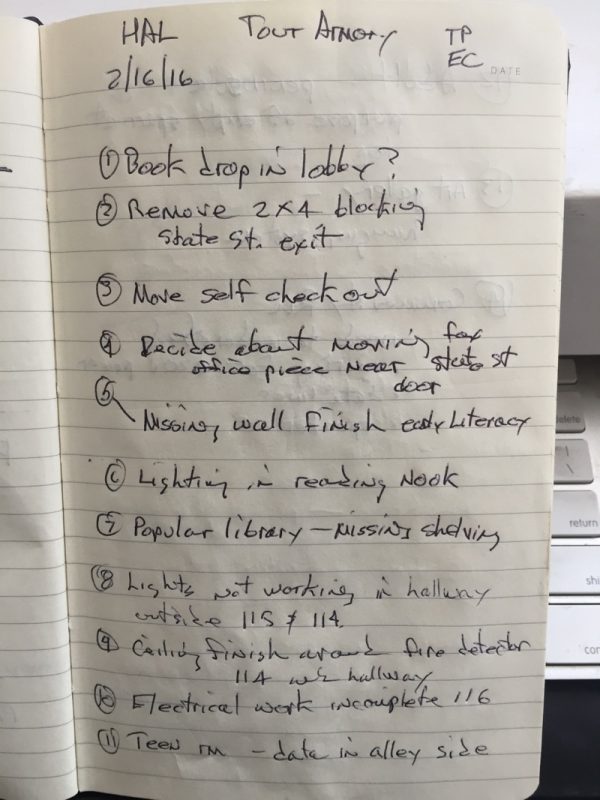 HAL Tour Armory TP
2/16/16 EC DATE
① Book drop in lobby?
② Remove 2x4 blocking
State St. exit
③ Move self checkout
④ Decide about moving fax
office piece near State St
door
⑤
Missing wall finish early literacy
⑥ Lighting in reading nook
⑦ Popular library - missing shelving
⑧ Lights not working in hallway
outside 115 & 114.
⑨ Ceiling finish around fire detector
114 hallway
⑩ Electrical work incomplete 116
⑪ Teen rm - data in alley side
delete
|
\
return
shi